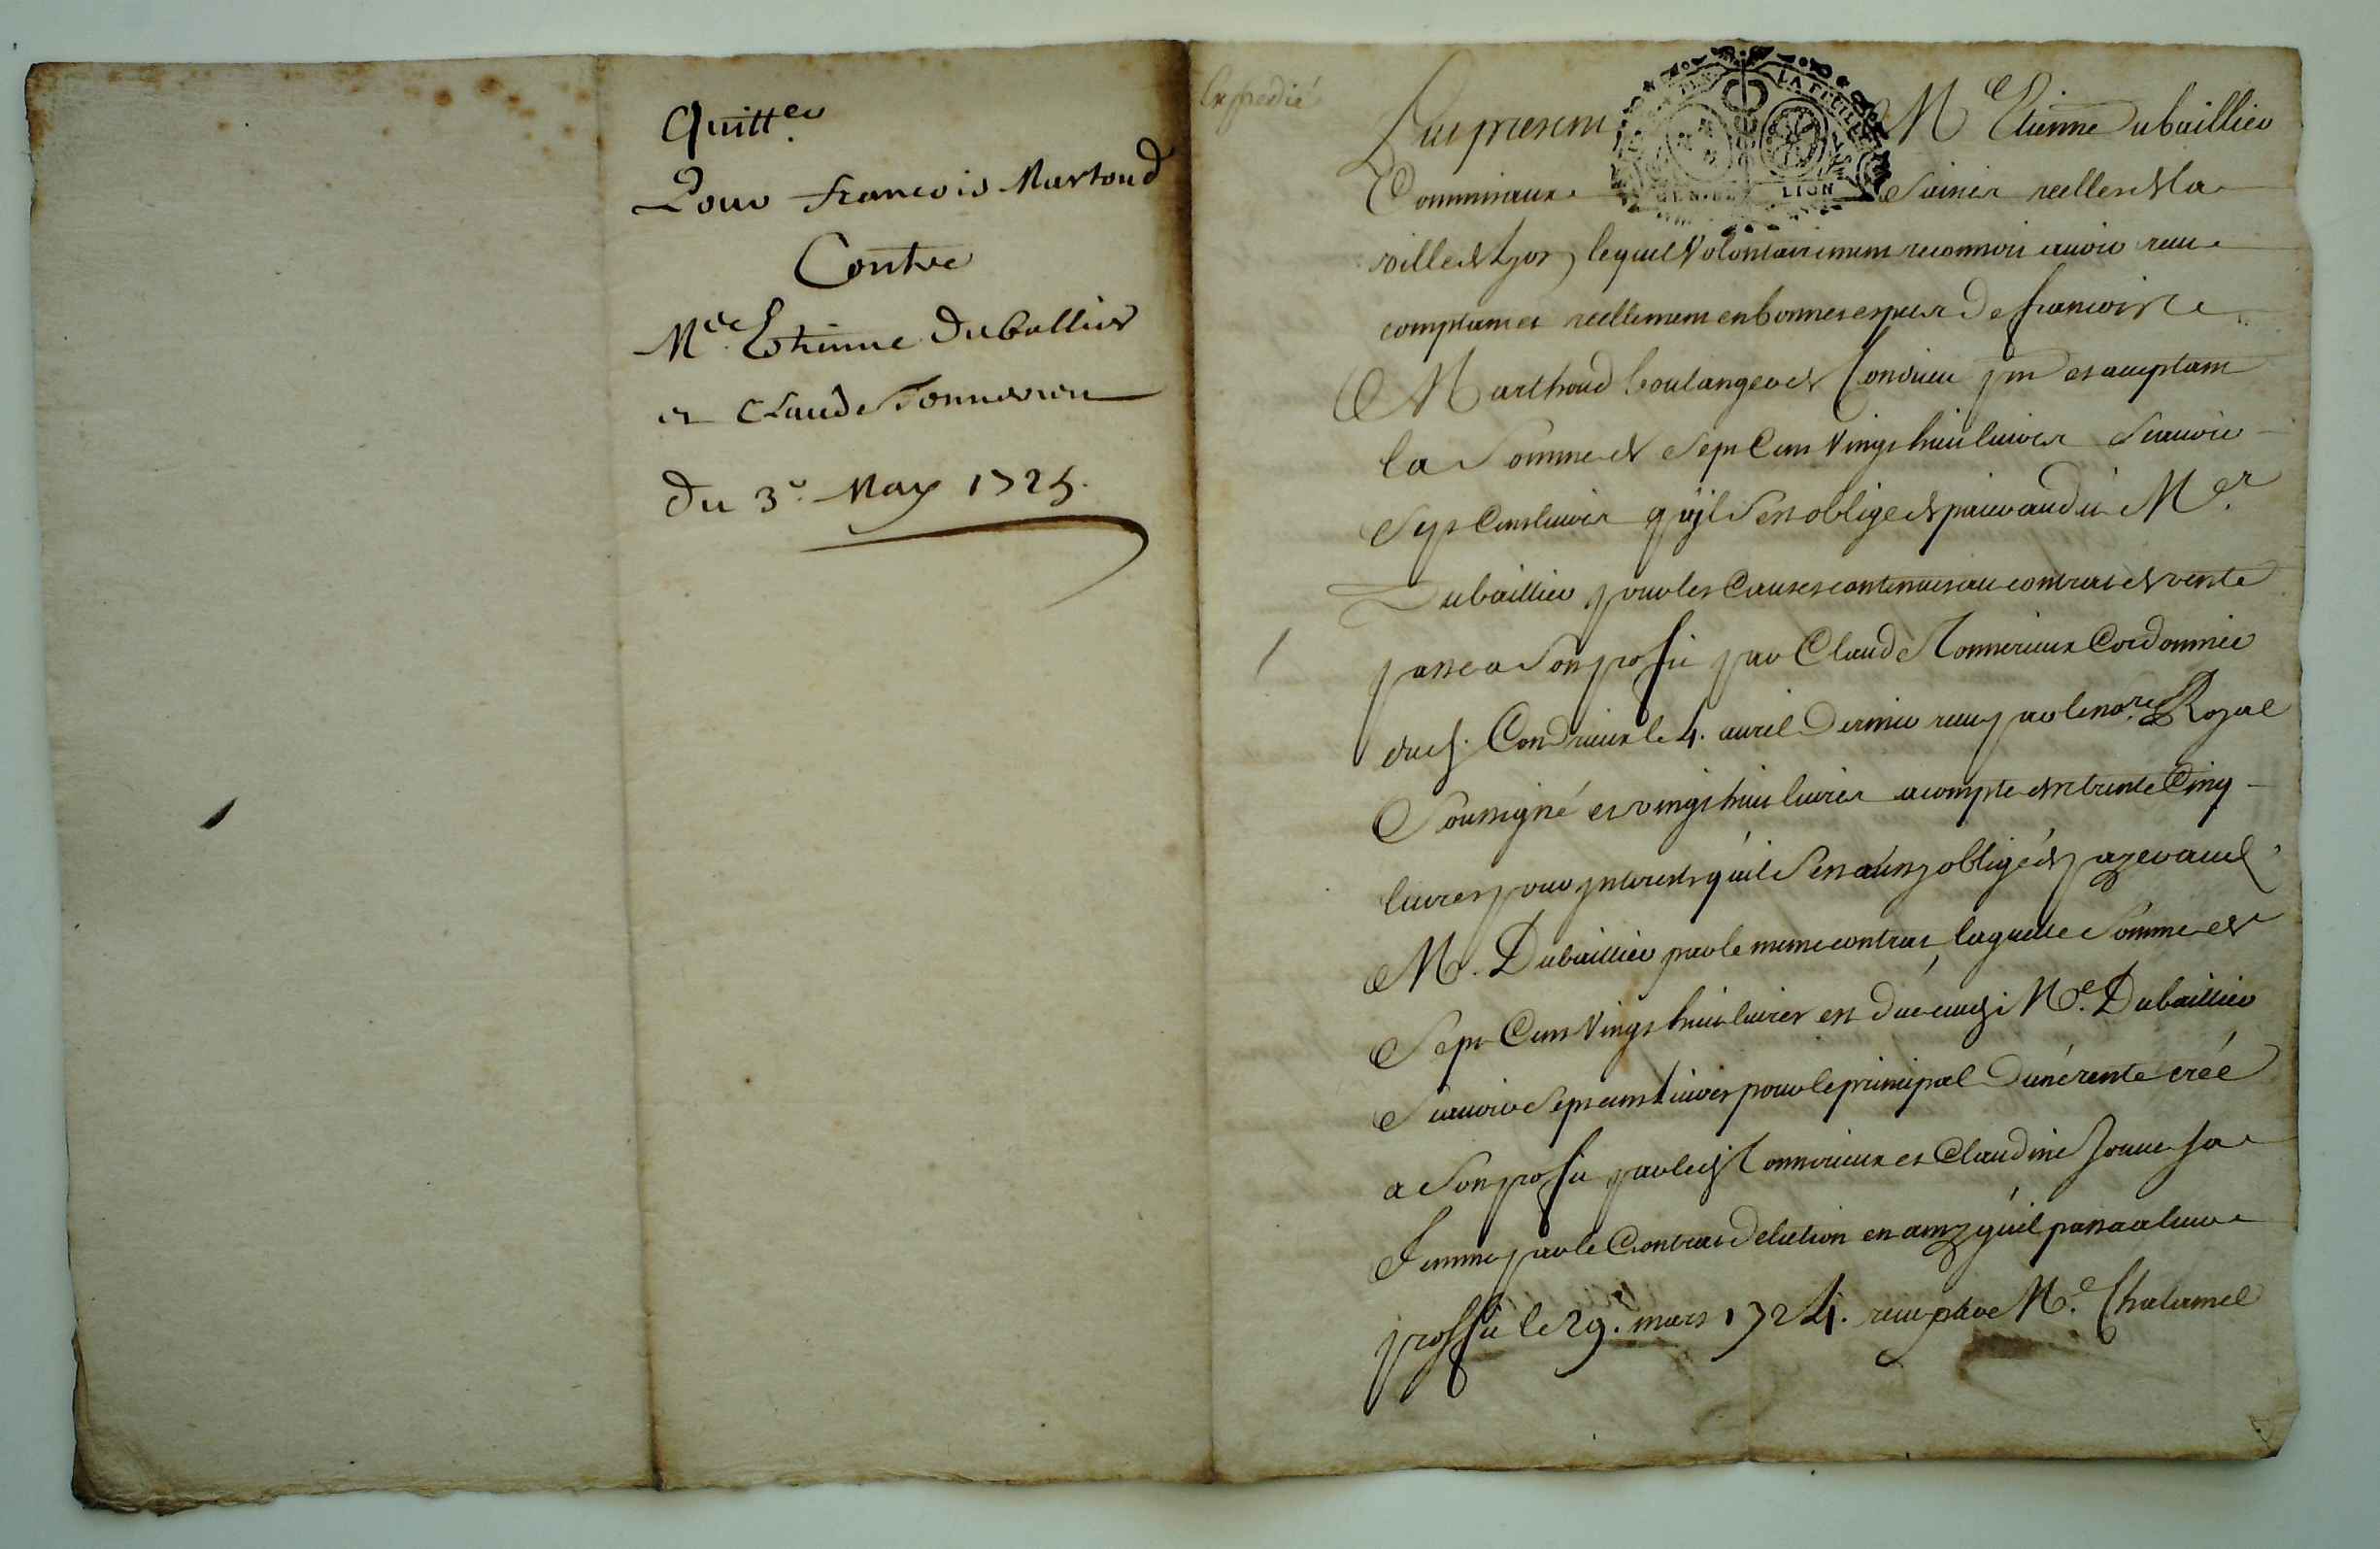 Quitt.ce
Pour francois Martoud
Contre
Me Estienne Duballier
et Claude Tonnerieu
du 3e May 1725.
Expedié
Fut present Me Etienne Dubaillier
Commissaire Saisies reelles de la
ville de Lyon lequel Volontairement reconnoit avoir receu
comptant et reellement en bonnes especes de francois
Marthoud boulanger de Condrieu pnt et acceptant
la Somme de Sept Cent Vingt huit livres Scavoir
Sept Cent livres qu'il s'est obligé de paier audit Mer
Dubaillier pour les Causes contenues au contrat de vente
passé a Son profit par Claude Tonnerieux Cordonnier
dud. Condrieux le 4. avril Dernier receu par le nore Royal
Soussigné et vingt huit livres a compte de trente Cinq
livres pour interests qu'il s'est aussy obligé de payer aud.
Me. Dubaillier par le meme contrat, laquelle Somme de
Sept Cent Vingt huit livres est due audit Me. Dubaillier
Scavoir Sept cent Livres pour le principal D'une rente créé
a Son profit par led. Tonnerieux et Claudine sa
femme par le Contrat qu'il passa a leur
proffit le 29. mars 1724. receu par Me. Chalamel
LA FEUILLE
GENER LION